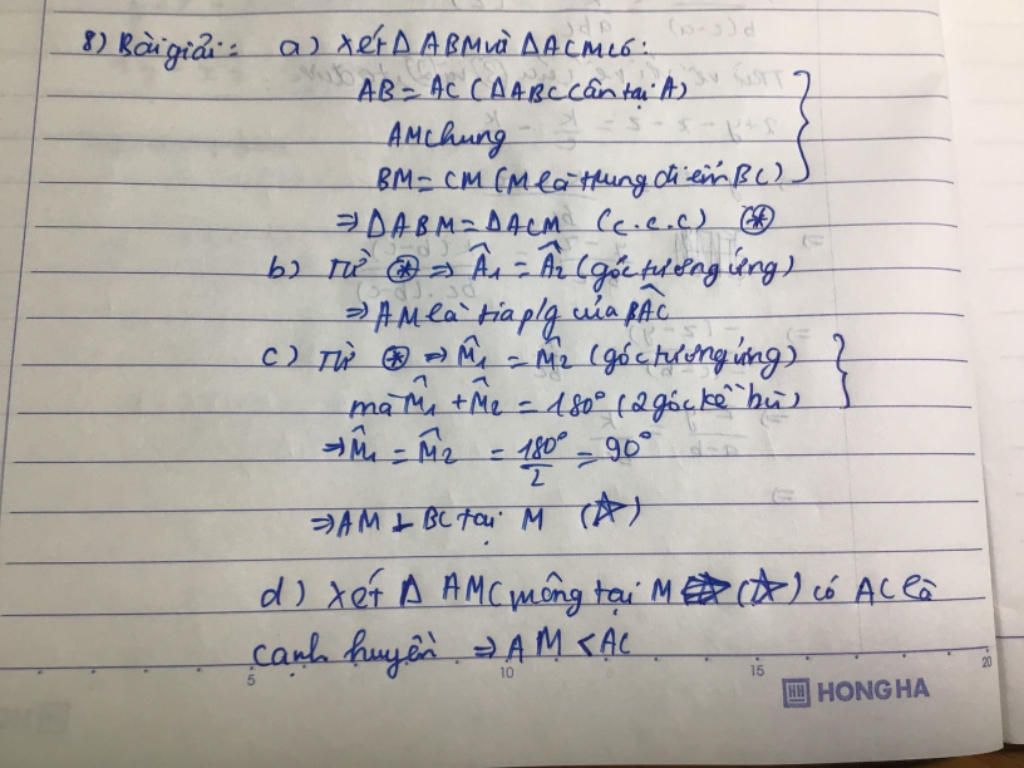 8) Bài giải: a) Xét Δ ABM và Δ ACM có:
AB = AC (ΔABC cân tại A)
AM chung
BM = CM (M là trung điểm BC)
⇒ ΔABM = ΔACM (c.c.c) ⊛
b) Từ ⊛ ⇒ Â₁ = Â₂ (góc tương ứng)
⇒ AM là tia p/g của BÂC
c) Từ ⊛ ⇒ M̂₁ = M̂₂ (góc tương ứng)
mà M̂₁ + M̂₂ = 180° (2 góc kề bù)
⇒ M̂₁ = M̂₂ = 180°/2 = 90°
⇒ AM ⊥ BC tại M (☆)
d) Xét Δ AMC vuông tại M (☆) có AC là
cạnh huyền ⇒ AM < AC
5 10 15 20
HH HONG HA